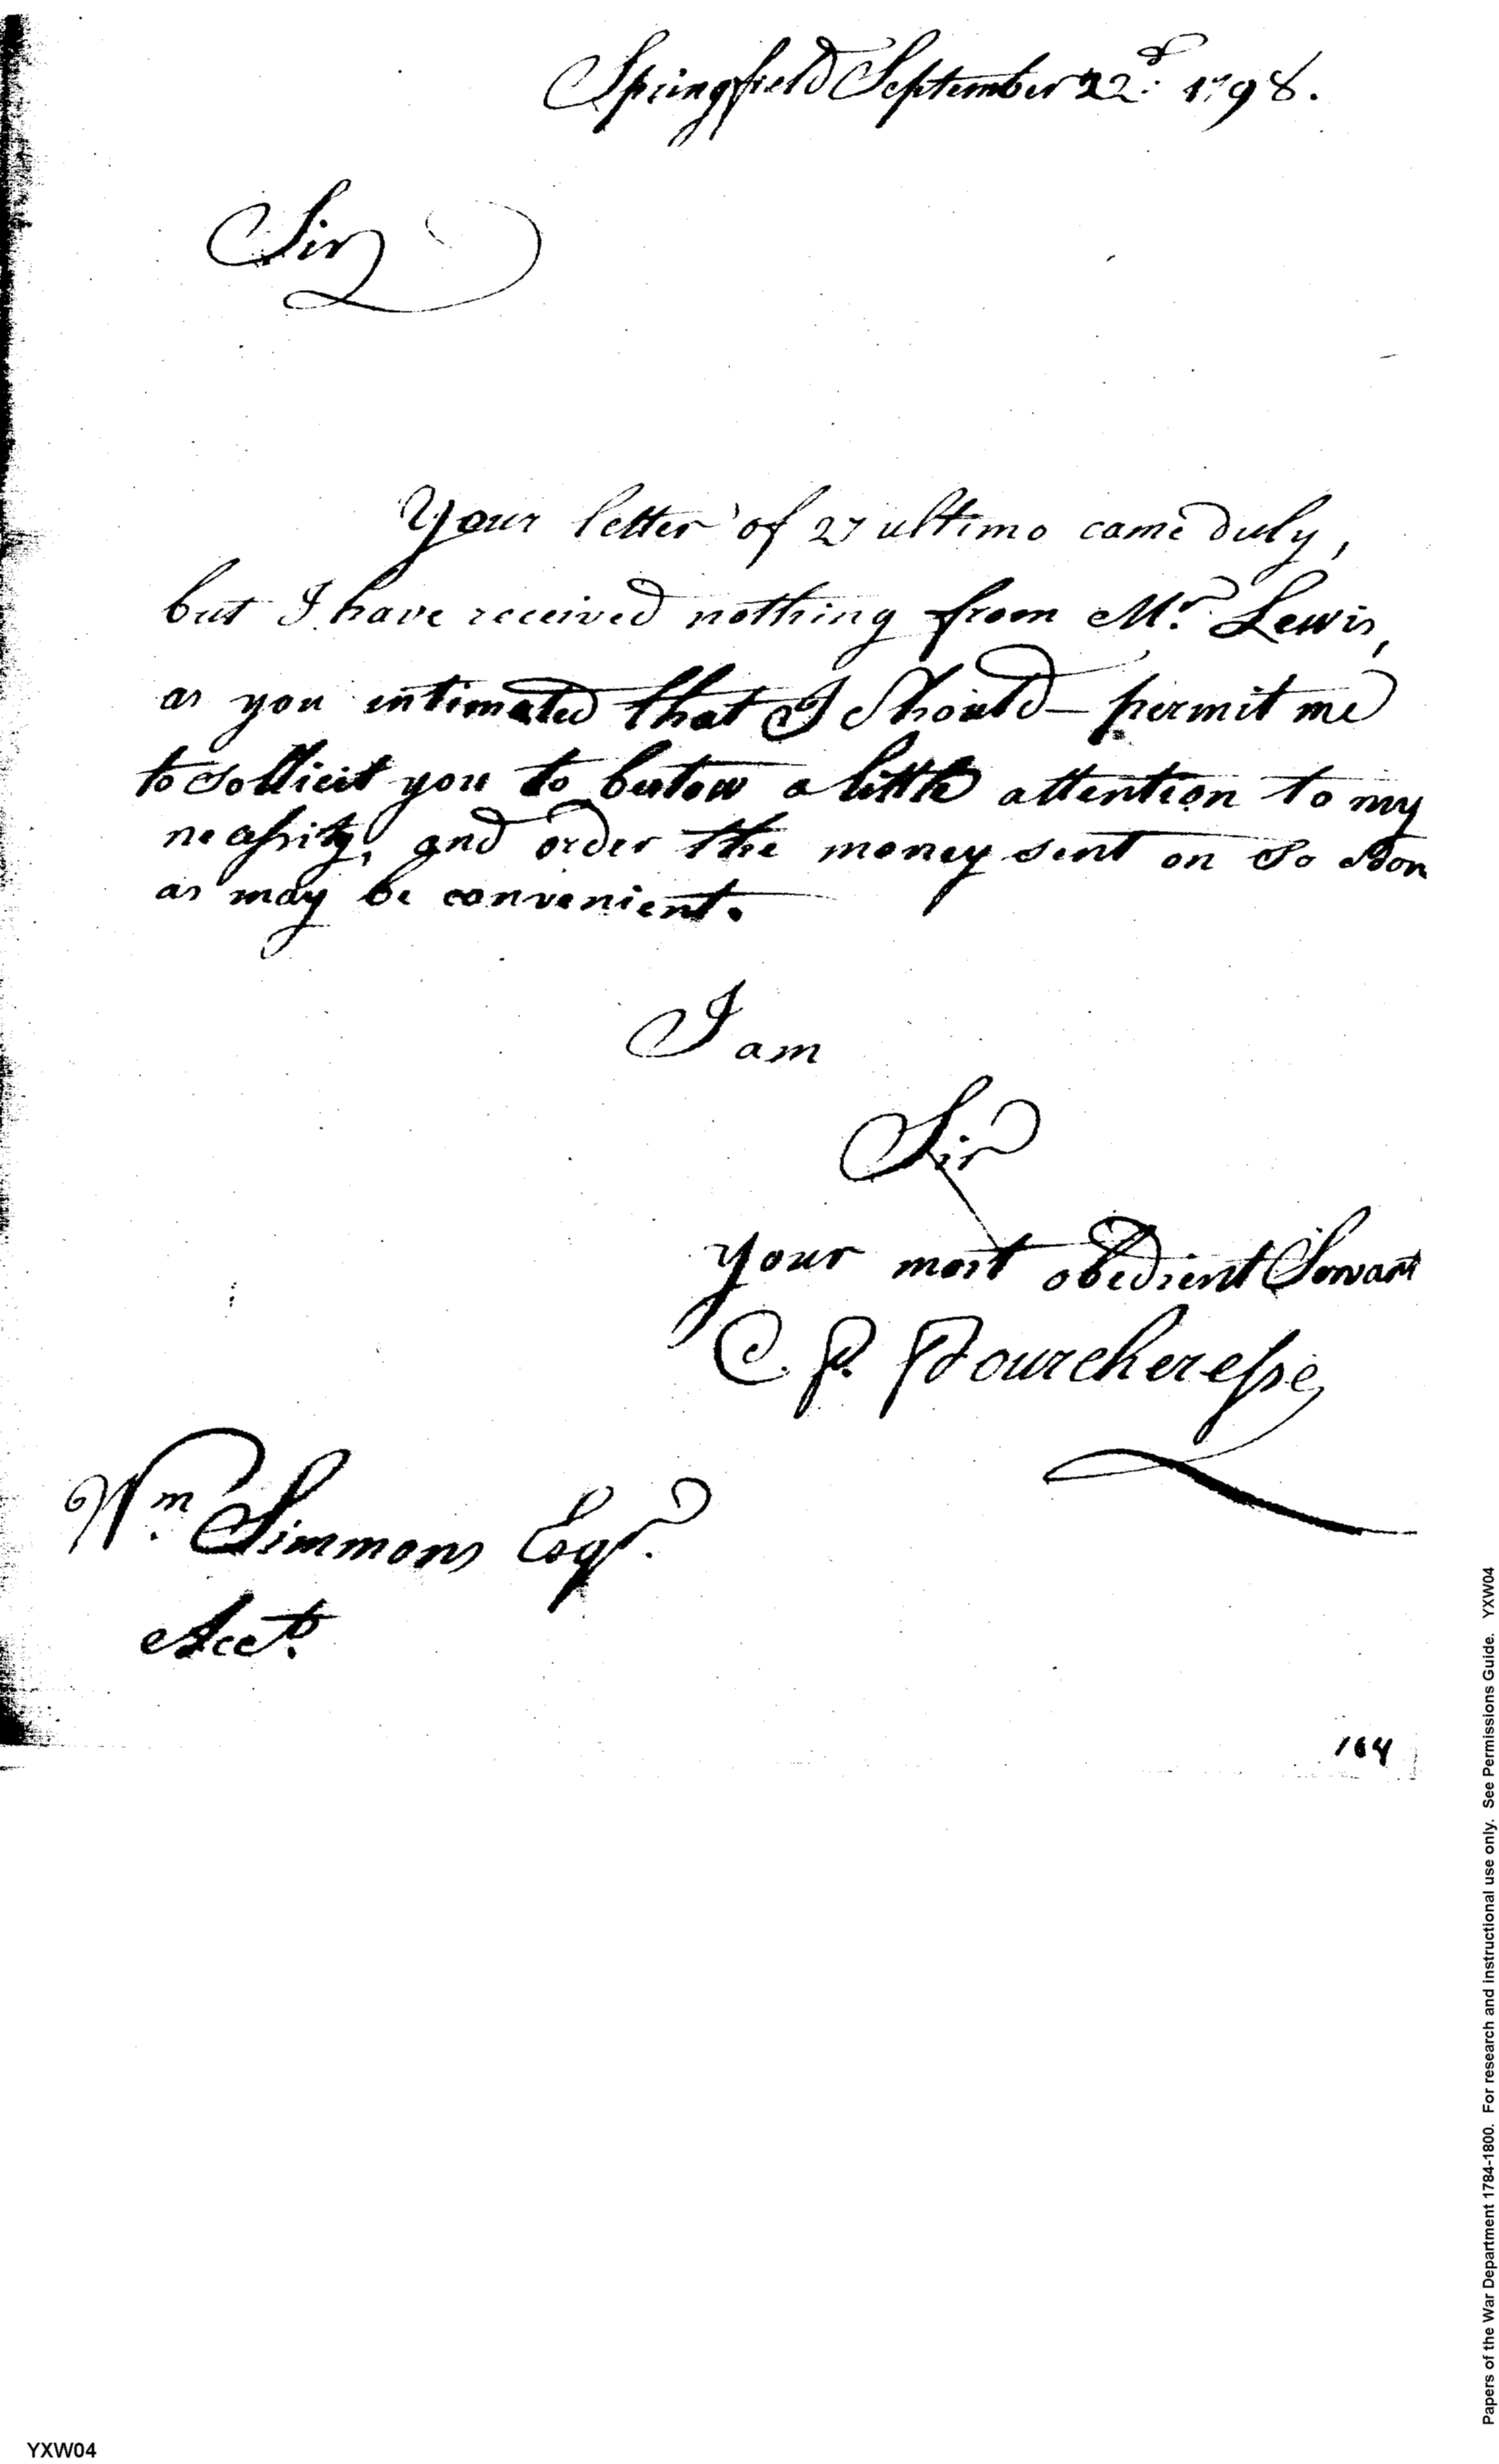 Springfield September 22d. 1798.
Sir
Your letter of 27 ultimo came duly,
but I have received nothing from Mr. Lewis,
as you intimated that I Should — permit me
to sollicit you to bestow a little attention to my
necessity, and order the money sent on so soon
as may be convenient.
I am
Sir
your most obedient Servant
C. P.
Wm. Simmons Esqr.
Acct.
164
YXW04
Papers of the War Department 1784-1800. For research and instructional use only. See Permissions Guide. YXW04